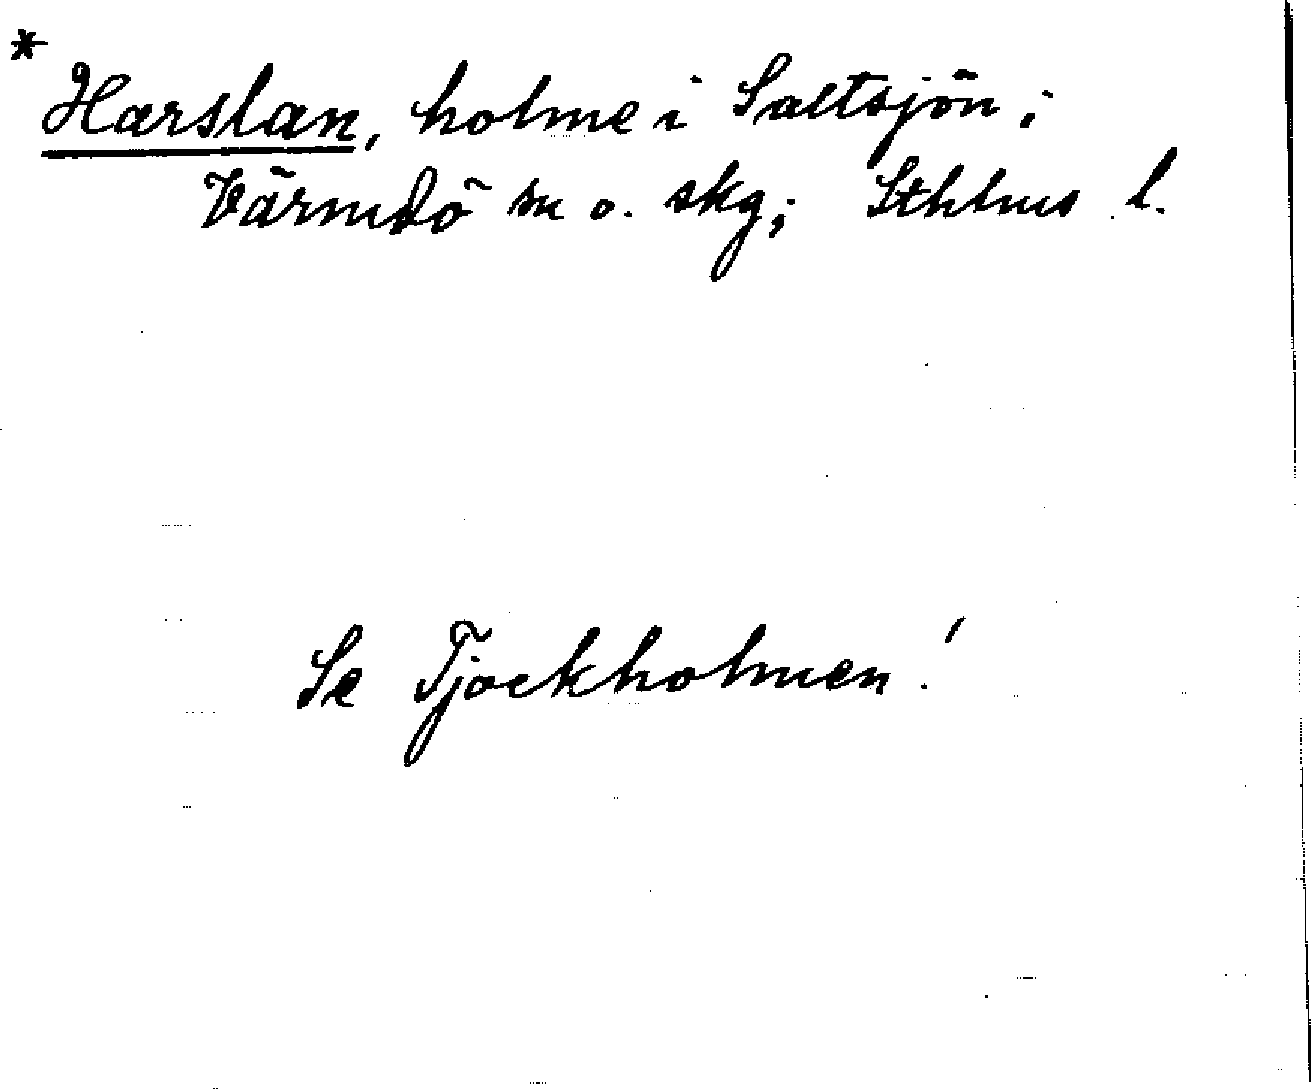 *
Harslan, holme i Saltsjön;
Värmdö sn o. skg; Sthlms l.
Se Tjockholmen!